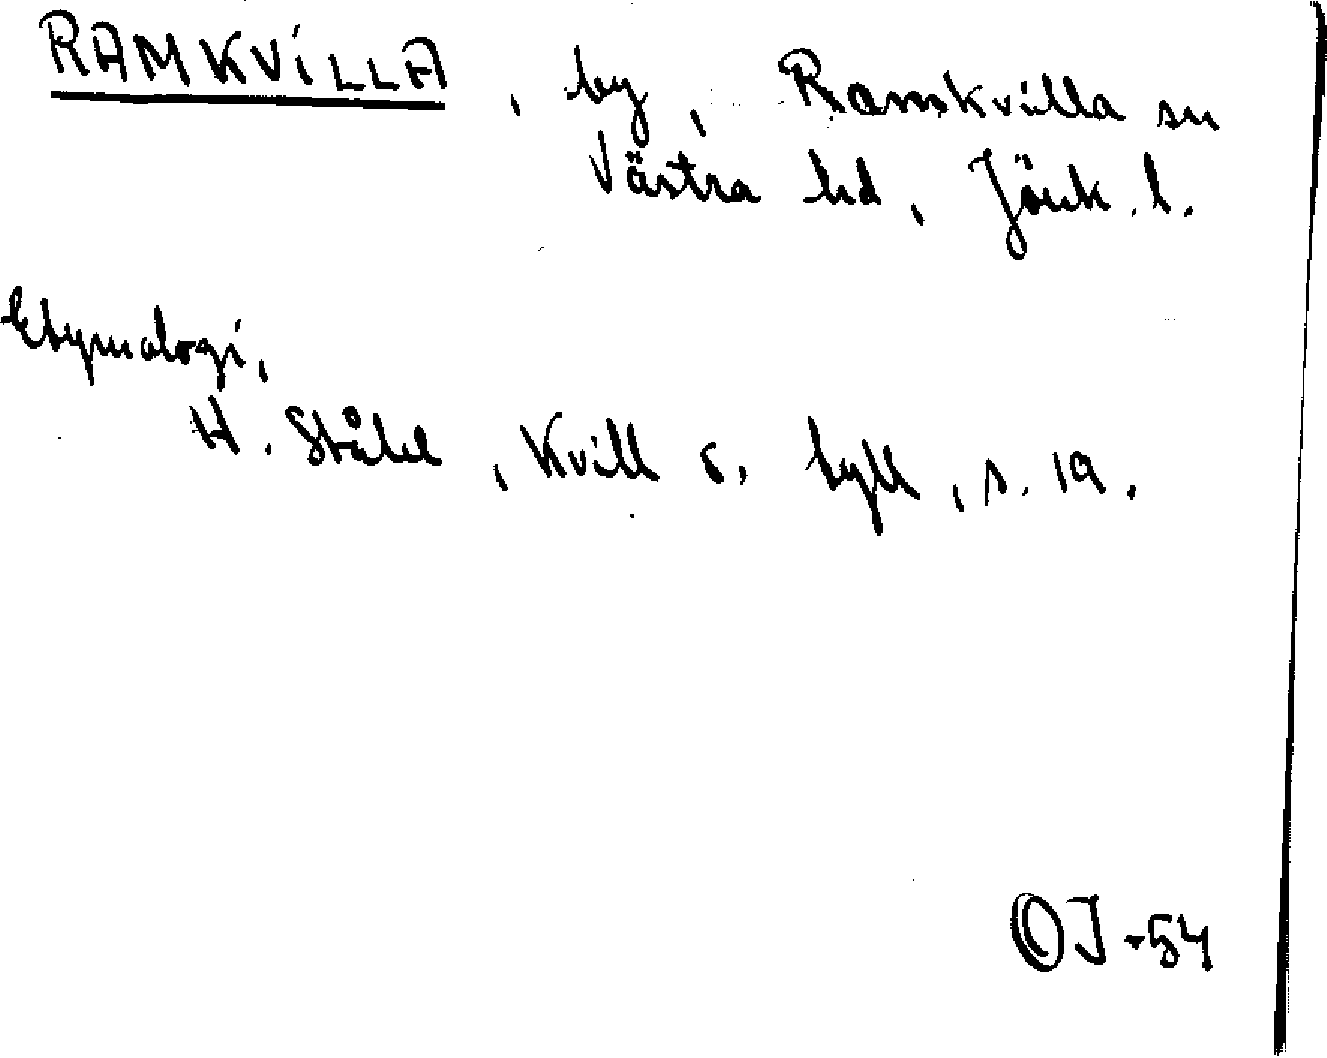 RAMKVILLA, by, Ramkvilla sn
Västra hd, Jönk. l.
Etymologi,
H. Ståhl, Kvill o. tyll, s. 19.
OJ -54